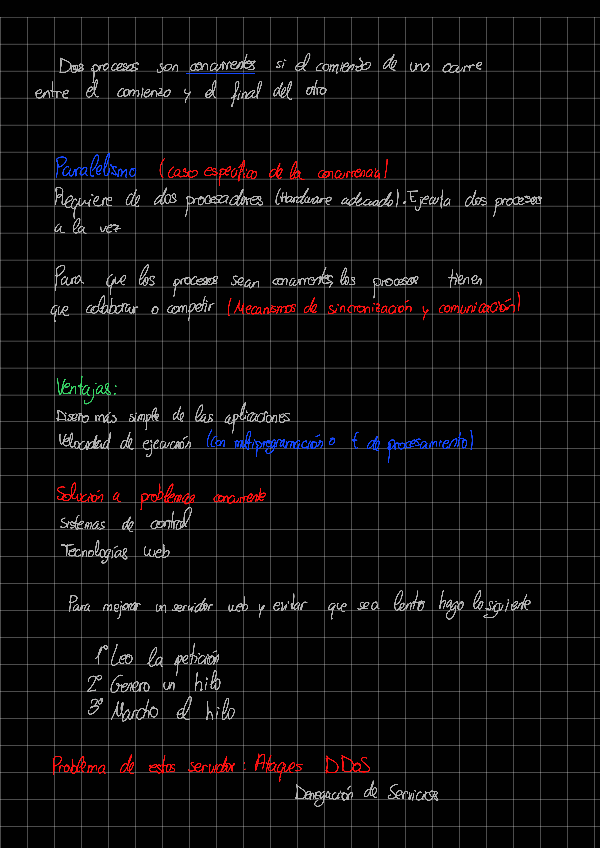 Dos procesos son concurrentes si el comienzo de uno ocurre
entre el comienzo y el final del otro
Paralelismo (caso específico de la concurrencia)
Requiere de dos procesadores (Hardware adecuado). Ejecuta dos procesos
a la vez
Para que los procesos sean concurrentes, los procesos tienen
que colaborar o competir (Mecanismos de sincronización y comunicación)
Ventajas:
Diseño más simple de las aplicaciones
Velocidad de ejecución (Con multiprogramación o de procesamiento)
Solución a problemas concurrente
Sistemas de control
Tecnologías web
Para mejorar un servidor web y evitar que sea lento hago lo siguiente
1º Leo la petición
2º Genero un hilo
3º Marcho el hilo
Problema de estos servidor: Ataques DDoS
Denegación de Servicios